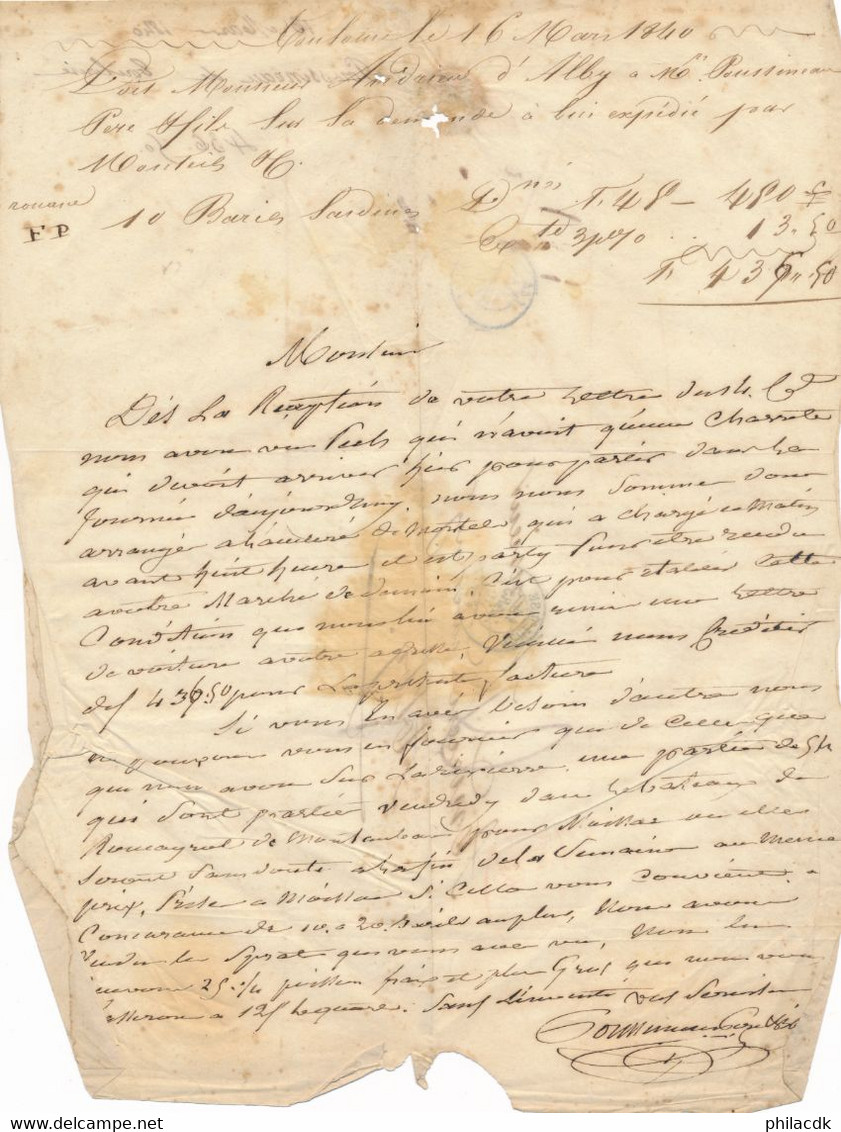 Toulouse le 16 Mars 1840
Doit Monsieur Andrieu d'Alby a Mr. Poussineau
Pere & fils Sur Sa demande a lui expédié par
Monteils
rouane
FP 10 Baries Sardines F. 48 — 480
3 p% .. 13.50
F. 436,,50
Monsieur
Dés La Réception de votre Lettre du 14. Ct
nous avons vu Piels qui n'avoit qu'une Charrete
qui devoit arriver hier pour partir dans la
Journée d'aujourdhuy. nous nous Somme donc
arrangé qui a chargé ce Matin
avant huit heure il est party pour être rendu
a votre Marché de demain. C'est pour
Condition que nous lui avons remis une Lettre
de voiture a votre adresse, Veuillé nous Créditer
de f 436.50 pour La présente facture
Si vous En avés besoin d'autre nous
ne pouvons vous en fournir que de Celle que
que nous avons Sur La riviere une partie de 54
qui Sont partie Vendredy dans le bateau de
Romayrol de Montauban pour Moissac ou elles
Seront Sans doute a la fin de la Semaine au Meme
prix, Prise a Moissac Si Cella vous Convient a
Concurance de 10. a 20. Barils au plus, Nous avons
Vendu les Sprat que vous avez vu, Nous En
avons 25 3/4 poisson frais et plus Gros que nous vous
a 12f le quart. Sans
Poussineau Pere & fils
philacdk